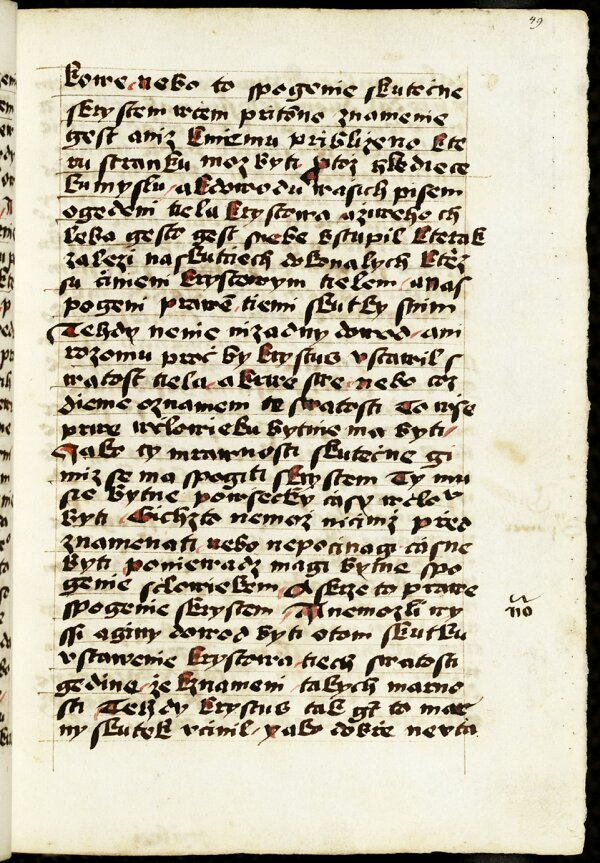 49
kowe nebo to spogenie skutečne
skrystem wčem pritōno znamenie
gest aniz kniemu približeno kte
ru stranku moz byti ptoz hlediece
kumyslu a kdowodu wasich pisem
ogedeni tiela krystowa aziweho ch
leba gesto gest snebe wstupil kterak
zalezi naskutciech dokonalych ktěz
su cineni krystowym tielem anas
pogeni prawē tiemi skutky snim
Tehdy nenie nizadny dowod ani
rozomu proč by krystus vstawil s
watost tiela a krwe swe nebo coz
dieme oznameni te swatosti To wise
prwe wclowieku bytnie ma byti
Jako ty mrawnosti skutečne gi
miz se ma spogiti skrystem Ty mu
sie bytne powsecky časy wčlow
byti Gichzto nemoz nicimz před
znamenati nebo nepocinagi časne
byti poniewadz magi bytne spo
genie sclowiekem A skrze to prawe
spogenie skrystem A nemozli wy
ssi a giny dowod byti otom skutku
vstawenie krystowa tiech swatosti
gedine ze kznameni takych marno
sti Tehdy krystus tak gt to mar
ny skutek vcinil yako dobře nevta
no